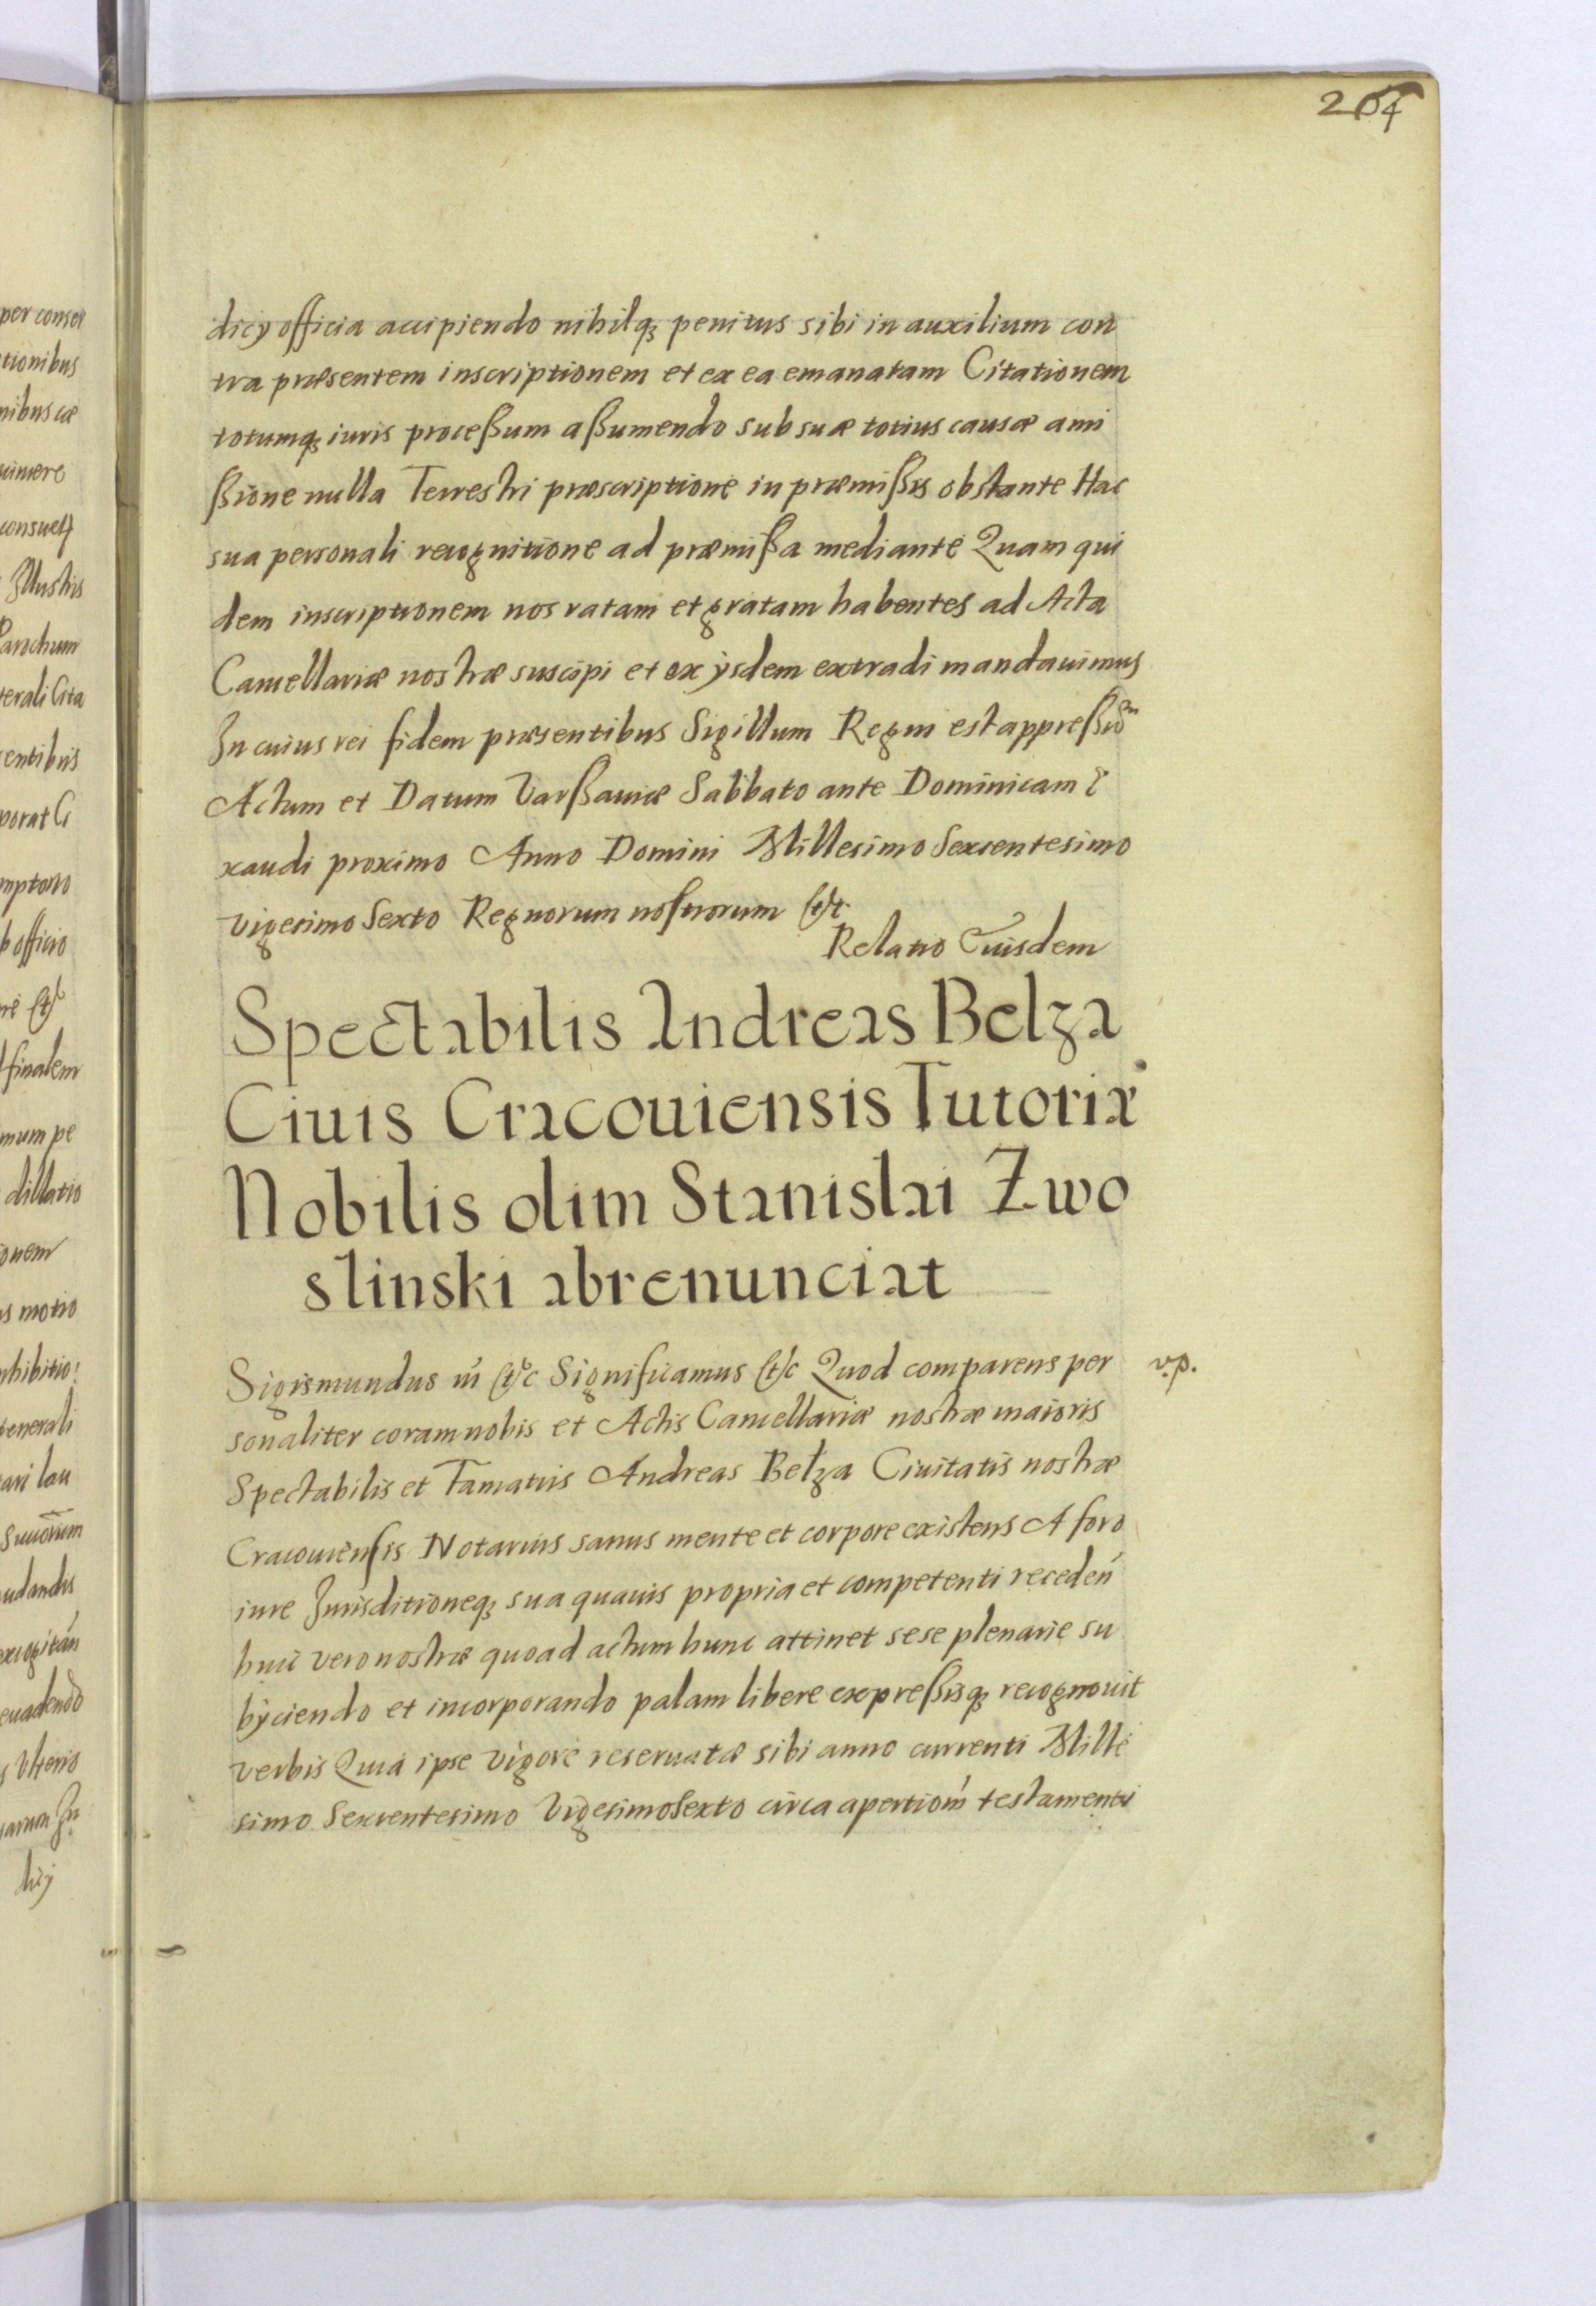 264
dicÿ officia accipiendo nihilq₃ penitus sibi in auxilium con
tra præsentem inscriptionem et ex ea emanatam Citationem
totumq₃ iuris proceßum aßumendo sub suæ totius causæ ami
ßione nulla Terrestri præscriptione in præmißis obstante Hac
sua personali recognitione ad præmißa mediante Quam qui
dem inscriptionem nos ratam et gratam habentes ad Acta
Cancellariæ nostræ suscipi et ex ÿsdem extradi mandauimus
In cuius rei fidem præsentibus Sigillum Regni est appreßũ
Actum et Datum Varßauiæ Sabbato ante Dominicam E
xaudi proximo Anno Domini Millesimo Sexcentesimo
vigesimo Sexto Regnorum nostrorum etc.
Relatio Eiusdem
Spectabilis Andreas Belza
Ciuis Cracouiensis Tutoriæ
Nobilis olim Stanislai Zwo
slinski abrenunciat
Sigismundus iii etc Significamus etc Quod comparens per
v.p.
sonaliter coram nobis et Actis Cancellariæ nostræ maioris
Spectabilis et Famatus Andreas Bełza Ciuitatis nostræ
Cracouiensis Notarius sanus mente et corpore existens A foro
iure Jurisditioneq₃ sua quauis propria et competenti receden
huic vero nostræ quoad actum hunc attinet sese plenarie su
bÿciendo et incorporando palam libere expreßisq₃ recognouit
verbis Quia ipse vigore reseruatæ sibi anno currenti Mille
simo Sexcentesimo Vigesimo Sexto circa apertiom testamenti